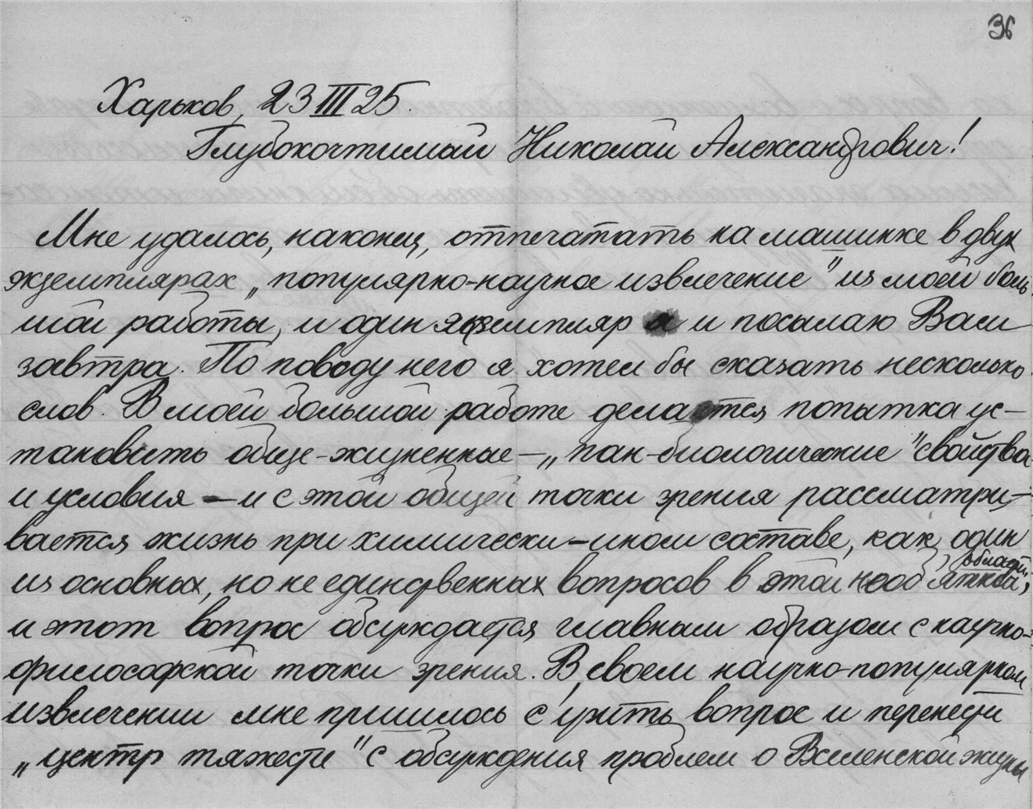 36
Харьков, 23 III 25.
Глубокочтимый Николай Александрович!
Мне удалось, наконец, отпечатать на машинке в двух
экземплярах „популярно-научное извлечение" из моей боль
шой работы, и один экземпляр и посылаю Вам
завтра. По поводу него я хотел бы сказать несколько
слов. В моей большой работе делается попытка ус-
тановить обще-жизненные — „пан-биологические" свойства
и условия — и с этой общей точки зрения рассматри-
вается жизнь при химически-ином составе, как один
из основных, но не единственных вопросов в этой области,
и этот вопрос обсуждается главным образом с научно-
философской точки зрения. В своем научно-популярном
извлечении мне пришлось сузить вопрос и перенести
„центр тяжести" с обсуждения проблем о Вселенской жизни